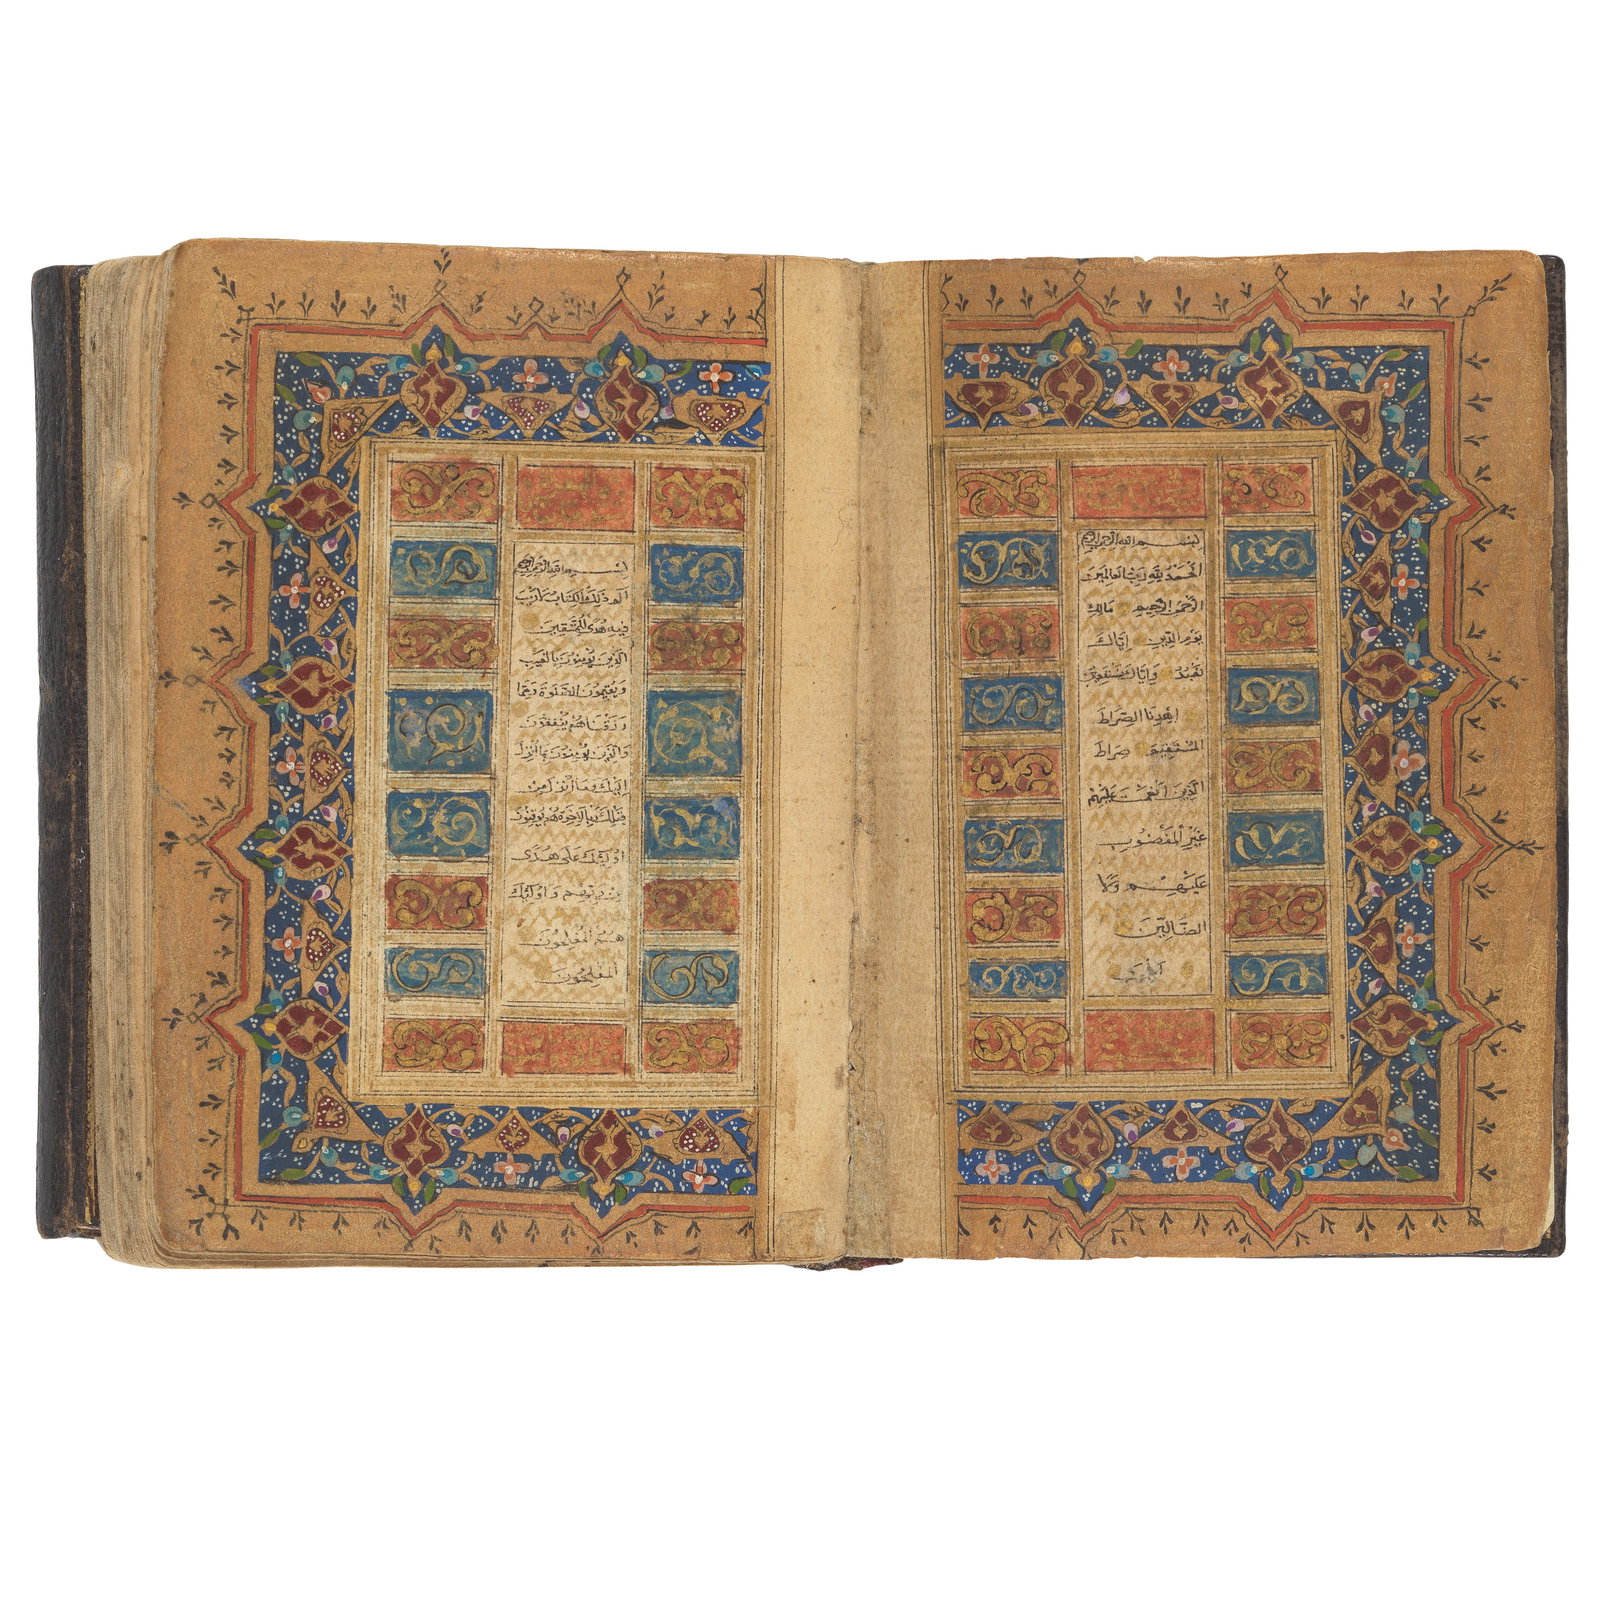 بسم الله الرحمن الرحيم
الحمد لله رب العالمين
الرحمن الرحيم مالك
يوم الدين اياك
نعبد واياك نستعين
اهدنا الصراط
المستقيم صراط
الذين انعمت عليهم
غير المغضوب
عليهم ولا
الضالين
بسم الله الرحمن الرحيم
الم ذلك الكتاب لا ريب
فيه هدى للمتقين
الذين يؤمنون بالغيب
ويقيمون الصلوة ومما
رزقناهم ينفقون
والذين يؤمنون بما انزل
اليك وما انزل من
قبلك وبالاخرة هم يوقنون
اولئك على هدى
من ربهم واولئك
هم المفلحون
المفلحون